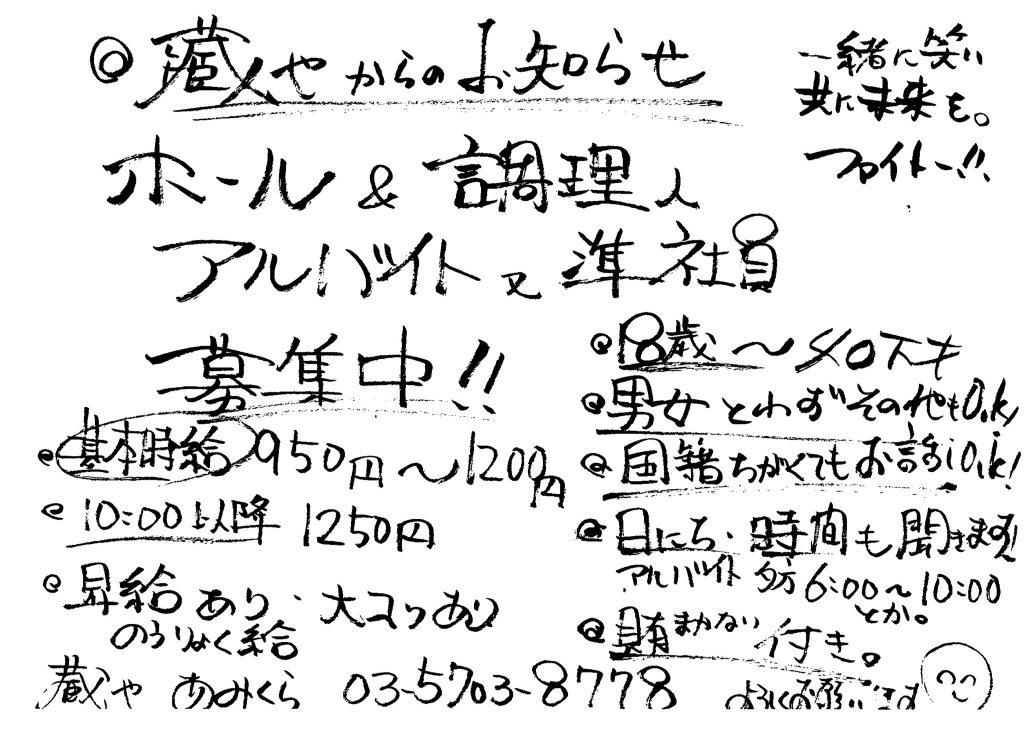 ◎蔵人やからのお知らせ
一緒に笑い
共に未来を。
ファイトー!!
ホール&調理人
アルバイト又準社員
募集中!!
基本時給 950円〜1200円
10:00以降 1250円
昇給あり・大コリあり
のうりょく給
18歳〜
男女とわずその他もO.k!
国籍ちがくてもお話O.k!
日にち・時間も聞きます!
アルバイト 夕方6:00〜10:00
とか。
まかない付き。
蔵人や あみくら 03-5703-8778
よろしくお願いします